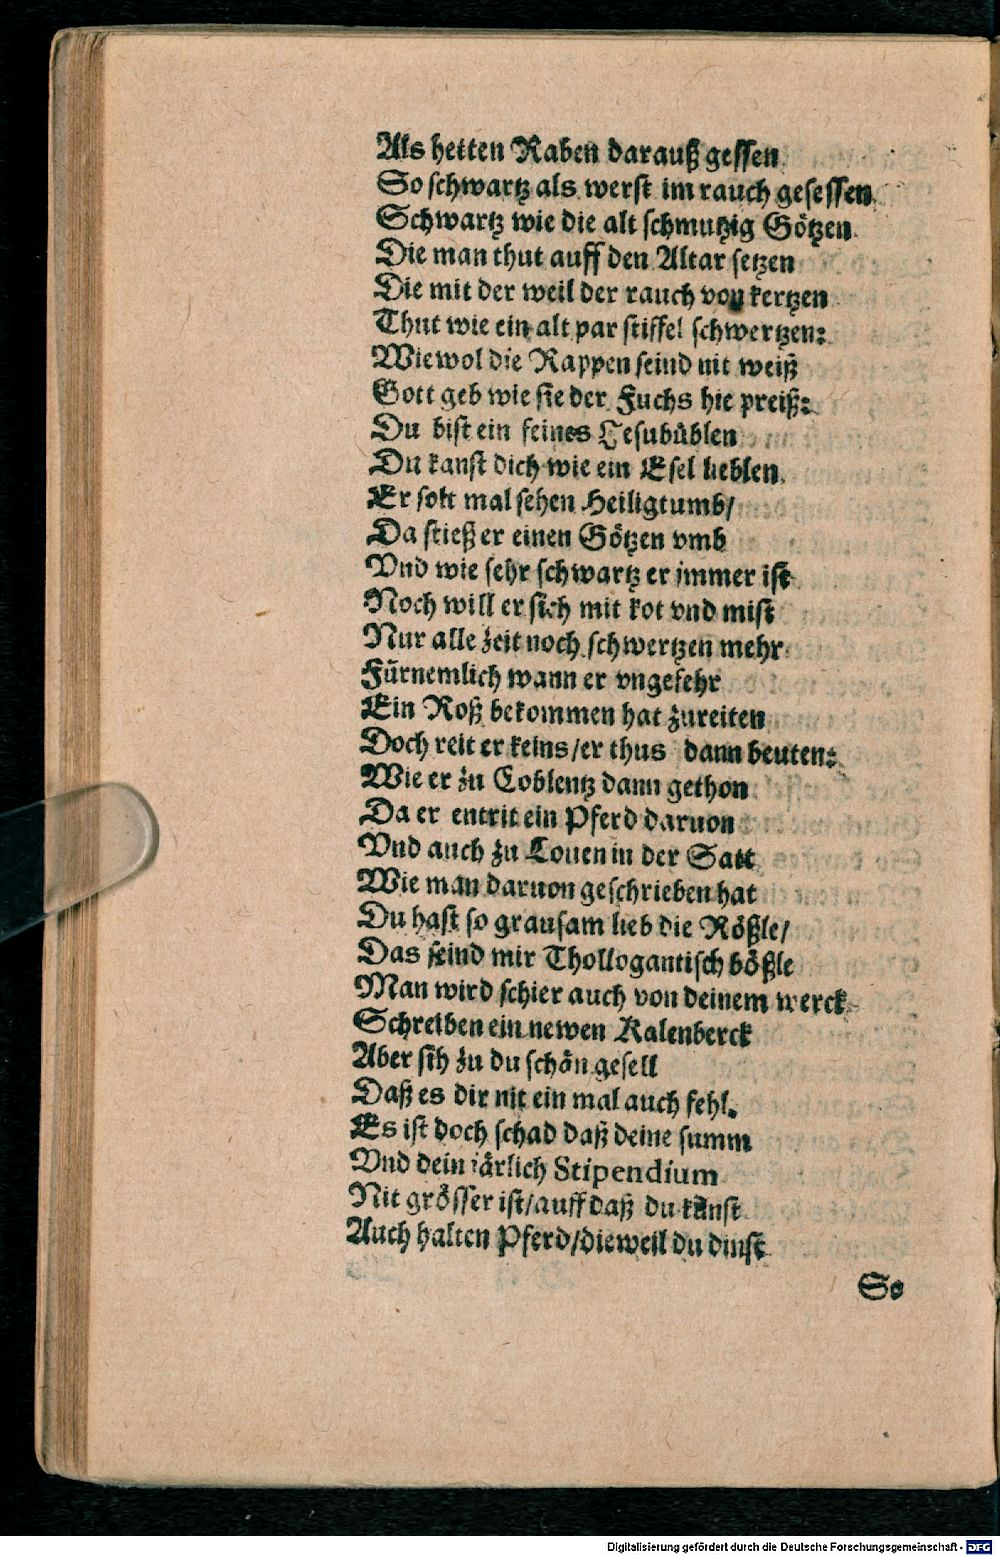 Als hetten Raben darauß gessen
So schwartz als werst im rauch gesessen,
Schwartz wie die alt schmutzig Götzen
Die man thut auff den Altar setzen
Die mit der weil der rauch von kertzen
Thut wie ein alt par stiffel schwertzen:
Wiewol die Rappen seind nit weiß
Gott geb wie sie der Fuchs hie preiß:
Du bist ein feines Jesubüblen
Du kanst dich wie ein Esel lieblen,
Er solt mal sehen Heiligtumb/
Da stieß er einen Götzen vmb
Vnd wie sehr schwartz er jmmer ist
Noch will er sich mit kot vnd mist
Nur alle zeit noch schwertzen mehr
Fürnemlich wann er vngefehr
Ein Roß bekommen hat zureiten
Doch reit er keins/er thus dann beuten:
Wie er zu Coblentz dann gethon
Da er entrit ein Pferd daruon
Vnd auch zu Louen in der Satt
Wie man daruon geschrieben hat
Du hast so grausam lieb die Rößle/
Das seind mir Thollogantisch bößle
Man wird schier auch von deinem werck
Schreiben ein newen Kalenberck
Aber sih zu du schön gesell
Daß es dir nit ein mal auch fehl.
Es ist doch schad daß deine summ
Vnd dein järlich Stipendium
Nit grösser ist/auff daß du känst
Auch halten Pferd/dieweil du dinst
So
Digitalisierung gefördert durch die Deutsche Forschungsgemeinschaft - DFG